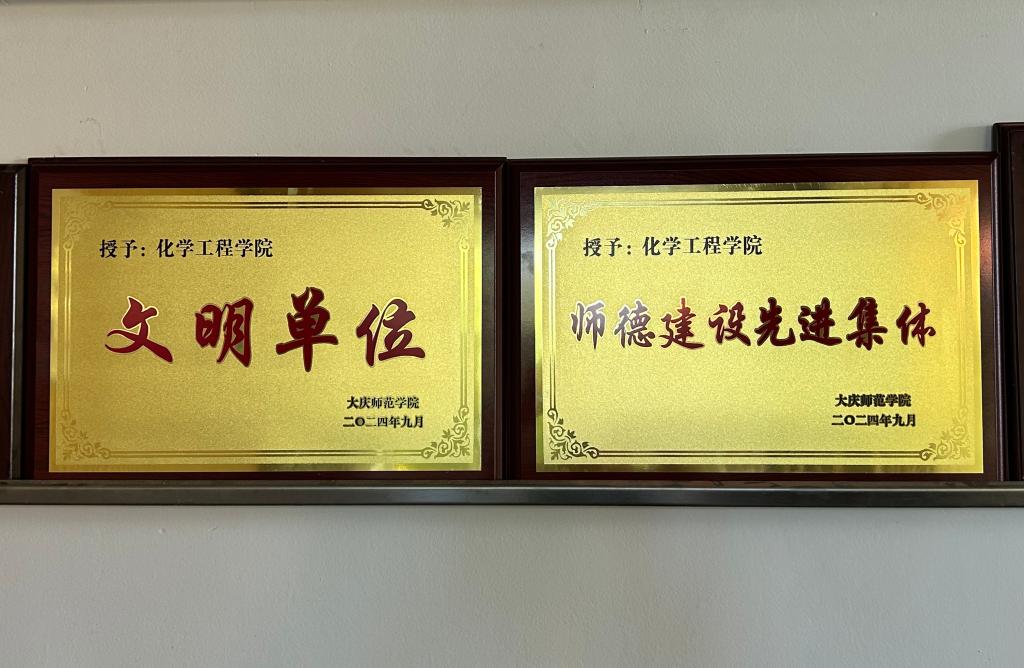 授予：化学工程学院
文明单位
大庆师范学院
二〇二四年九月
授予：化学工程学院
师德建设先进集体
大庆师范学院
二〇二四年九月